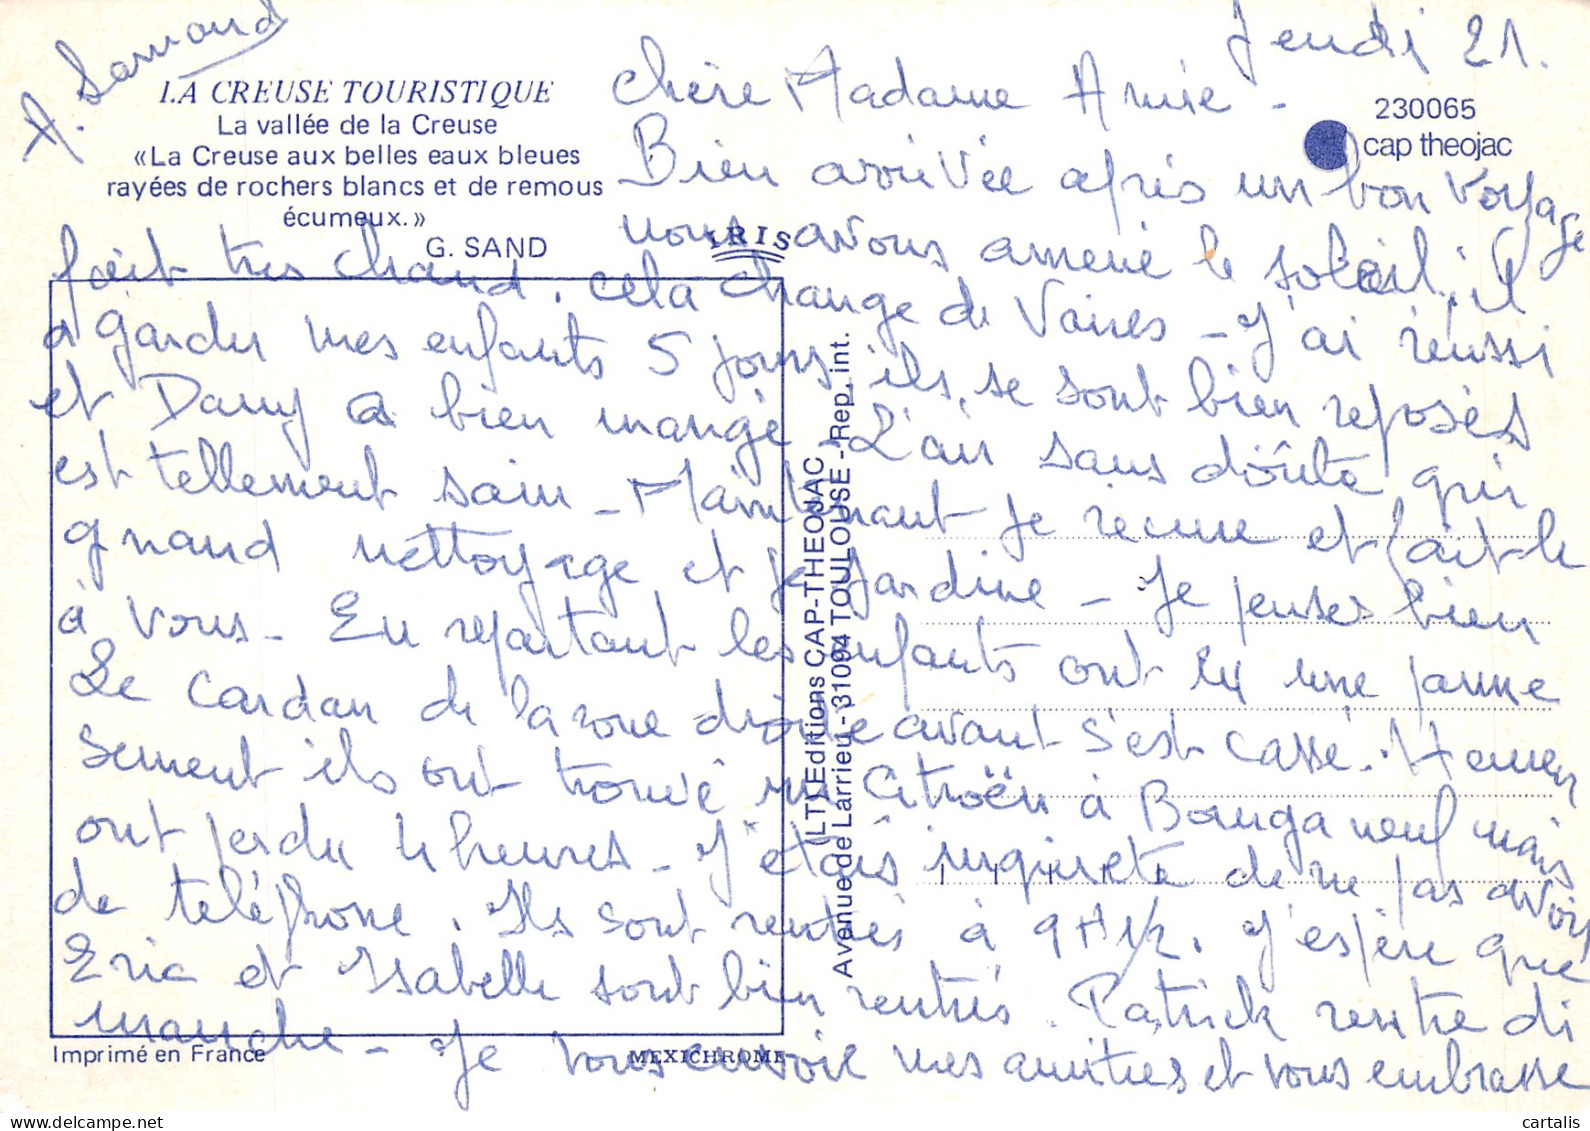 Jeudi 21.
LA CREUSE TOURISTIQUE
La vallée de la Creuse
«La Creuse aux belles eaux bleues
rayées de rochers blancs et de remous
écumeux.»
G. SAND
230065
cap theojac
IRIS
Chère Madame Amie -
Bien arrivée après un bon voyage
nous avons amené le soleil, il
fait très chaud, cela change de Vaires - J'ai réussi
a garder mes enfants 5 jours, ils se sont bien reposés
et Dany a bien mangé - L'air sans doûte qui
est tellement sain - Maintenant je récure et fait le
grand nettoyage et je jardine - Je penses bien
à vous - En repartant les enfants ont eu une panne
Le cardan de la roue droite avant s'est cassé. Heureu
sement ils ont trouvé un Citroën à Bourganeuf mais
ont perdu 4 heures - J'étais inquiete de ne pas avoir
de téléphone. Ils sont rentrés à 9H1/2. J'espère que
Eric et Isabelle sont bien rentrés. Patrick rentre di
manche - Je vous envoie mes amitiés et vous embrasse
A.
[LTY] Editions CAP-THEOJAC
Avenue de Larrieu - 31094 TOULOUSE - Rep. int.
Imprimé en France
MEXICHROME
cartalis